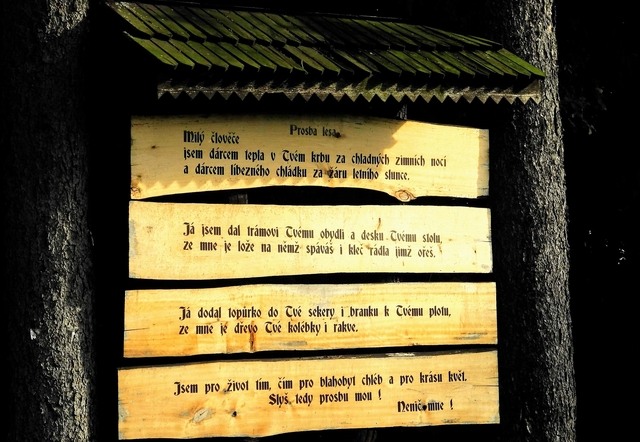 Prosba lesa
Milý člověče
jsem dárcem tepla v Tvém krbu za chladných zimních nocí
a dárcem líbezného chládku za žáru letního slunce.
Já jsem dal trámoví Tvému obydlí a desku Tvému stolu,
ze mne je lože na němž spáváš i kleč rádla jímž ořeš.
Já dodal topůrko do Tvé sekery i branku k Tvému plotu,
ze mne je dřevo Tvé kolébky i rakve.
Jsem pro život tím, čím pro blahobyt chléb a pro krásu květ.
Slyš tedy prosbu mou !
Nenič mne !